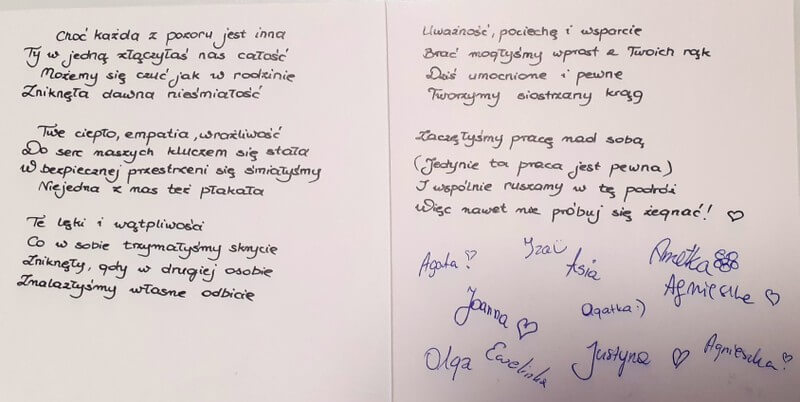 Choć każda z pozoru jest inna
Ty w jedną złączyłaś nas całość
Możemy się czuć jak w rodzinie
Zniknęła dawna nieśmiałość
Twe ciepło, empatia, wrażliwość
Do serc naszych kluczem się stała
W bezpiecznej przestrzeni się śmiałyśmy
Niejedna z nas też płakała
Te lęki i wątpliwości
Co w sobie trzymałyśmy skrycie
Zniknęły, gdy w drugiej osobie
Znalazłyśmy własne odbicie
Uważność, pociechę i wsparcie
Brać mogłyśmy wprost z Twoich rąk
Dziś umocnione i pewne
Tworzymy siostrzany krąg
Zaczęłyśmy pracę nad sobą
(Jedynie ta praca jest pewna)
I wspólnie ruszamy w tę podróż
Więc nawet nie próbuj się żegnać! ♡
Agata
Iza
Asia
Anetka
Agnieszka ♡
Joanna ♡
Agatka :)
Olga
Ewelinka
Justyna ♡
Agnieszka